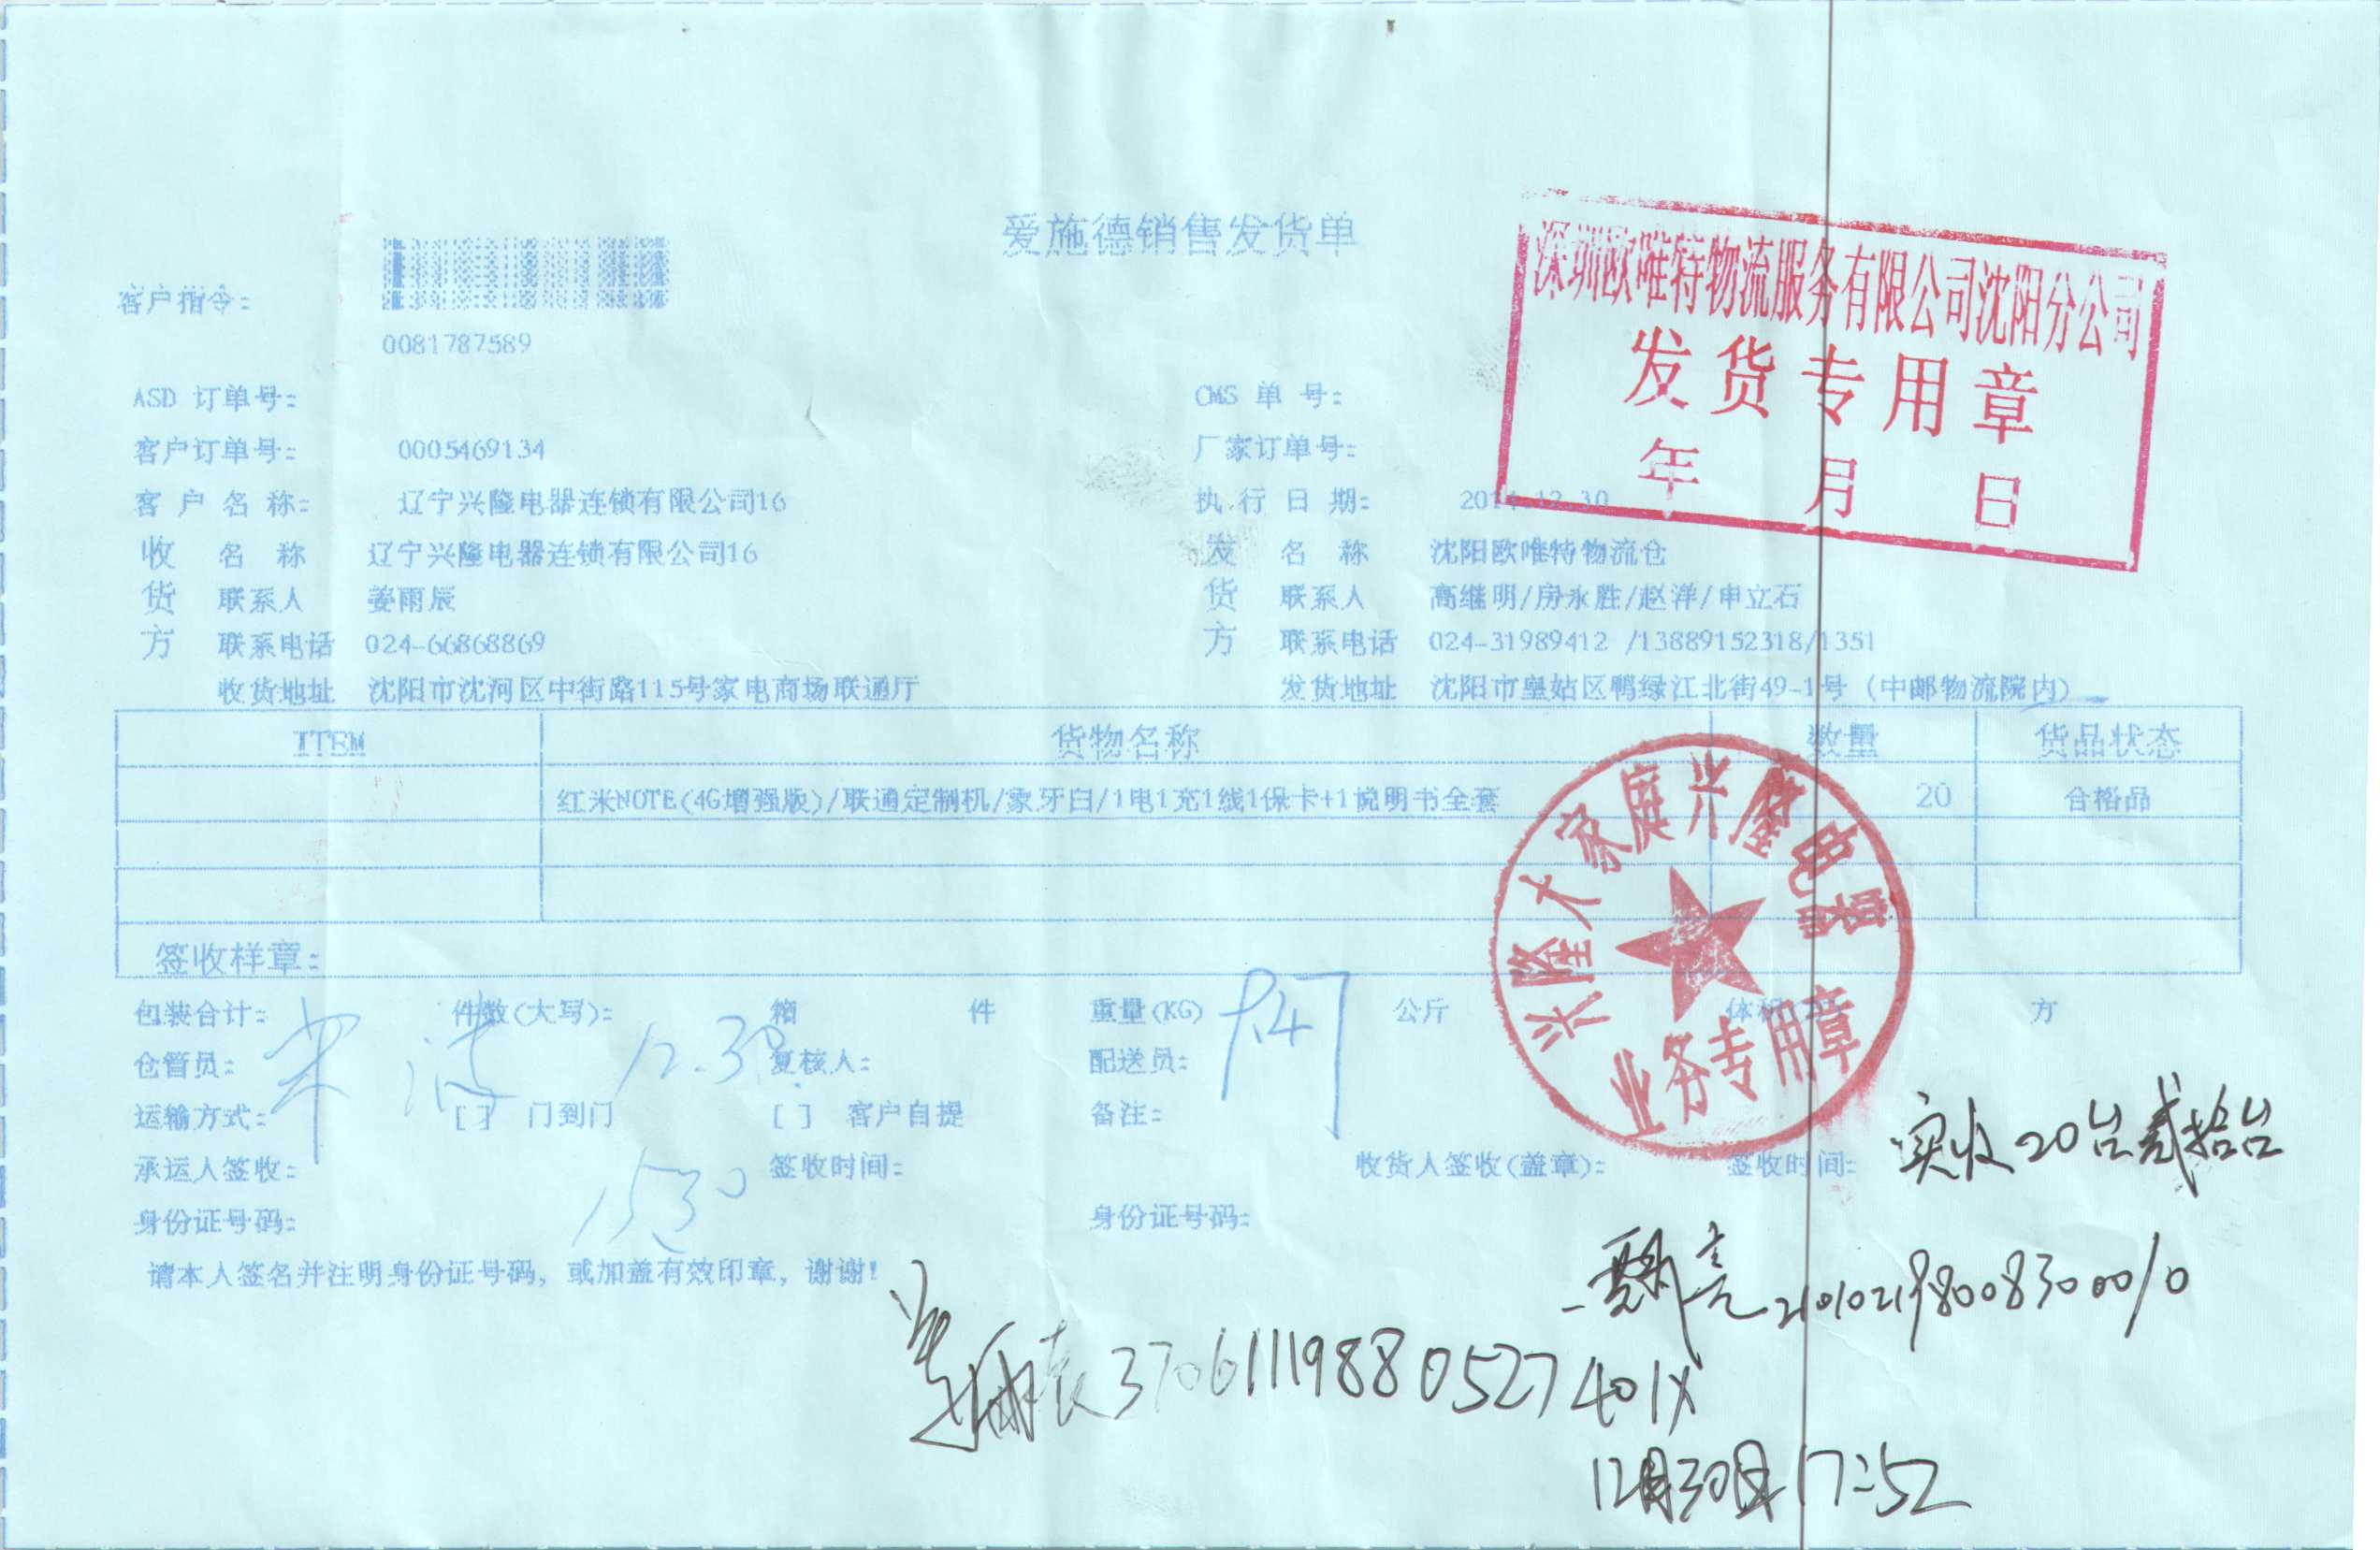 爱施德销售发货单
深圳欧唯特物流服务有限公司沈阳分公司
发货专用章
年 月 日
客户指令:
0081787589
ASD 订单号: CMS 单 号:
客户订单号: 0005469134 厂家订单号:
客 户 名 称: 辽宁兴隆电器连锁有限公司16 执 行 日 期: 2014-12-30
收 名 称 辽宁兴隆电器连锁有限公司16 发 名 称 沈阳欧唯特物流仓
货 联系人 姜雨辰 货 联系人 高继明/房永胜/赵洋/申立石
方 联系电话 024-66868869 方 联系电话 024-31989412 /13889152318/1351
收货地址 沈阳市沈河区中街路115号家电商场联通厅 发货地址 沈阳市皇姑区鸭绿江北街49-1号 (中邮物流院内)
ITEM 货物名称 数量 货品状态
红米NOTE(4G增强版)/联通定制机/象牙白/1电1充1线1保卡+1说明书全套 20 合格品
兴隆大家庭兴隆电器
业务专用章
签收样章:
包装合计: 件数(大写): 箱 件 重量(KG) 公斤 方
仓管员: 12.30 复核人: 配送员:
运输方式: [ ] 门到门 [ ] 客户自提 备注:
实收20台贰拾台
承运人签收: 1530 签收时间: 收货人签收(盖章): 签收时间:
身份证号码: 身份证号码:
请本人签名并注明身份证号码, 或加盖有效印章, 谢谢!
姜雨辰37061119880527401X
12月30日17:52